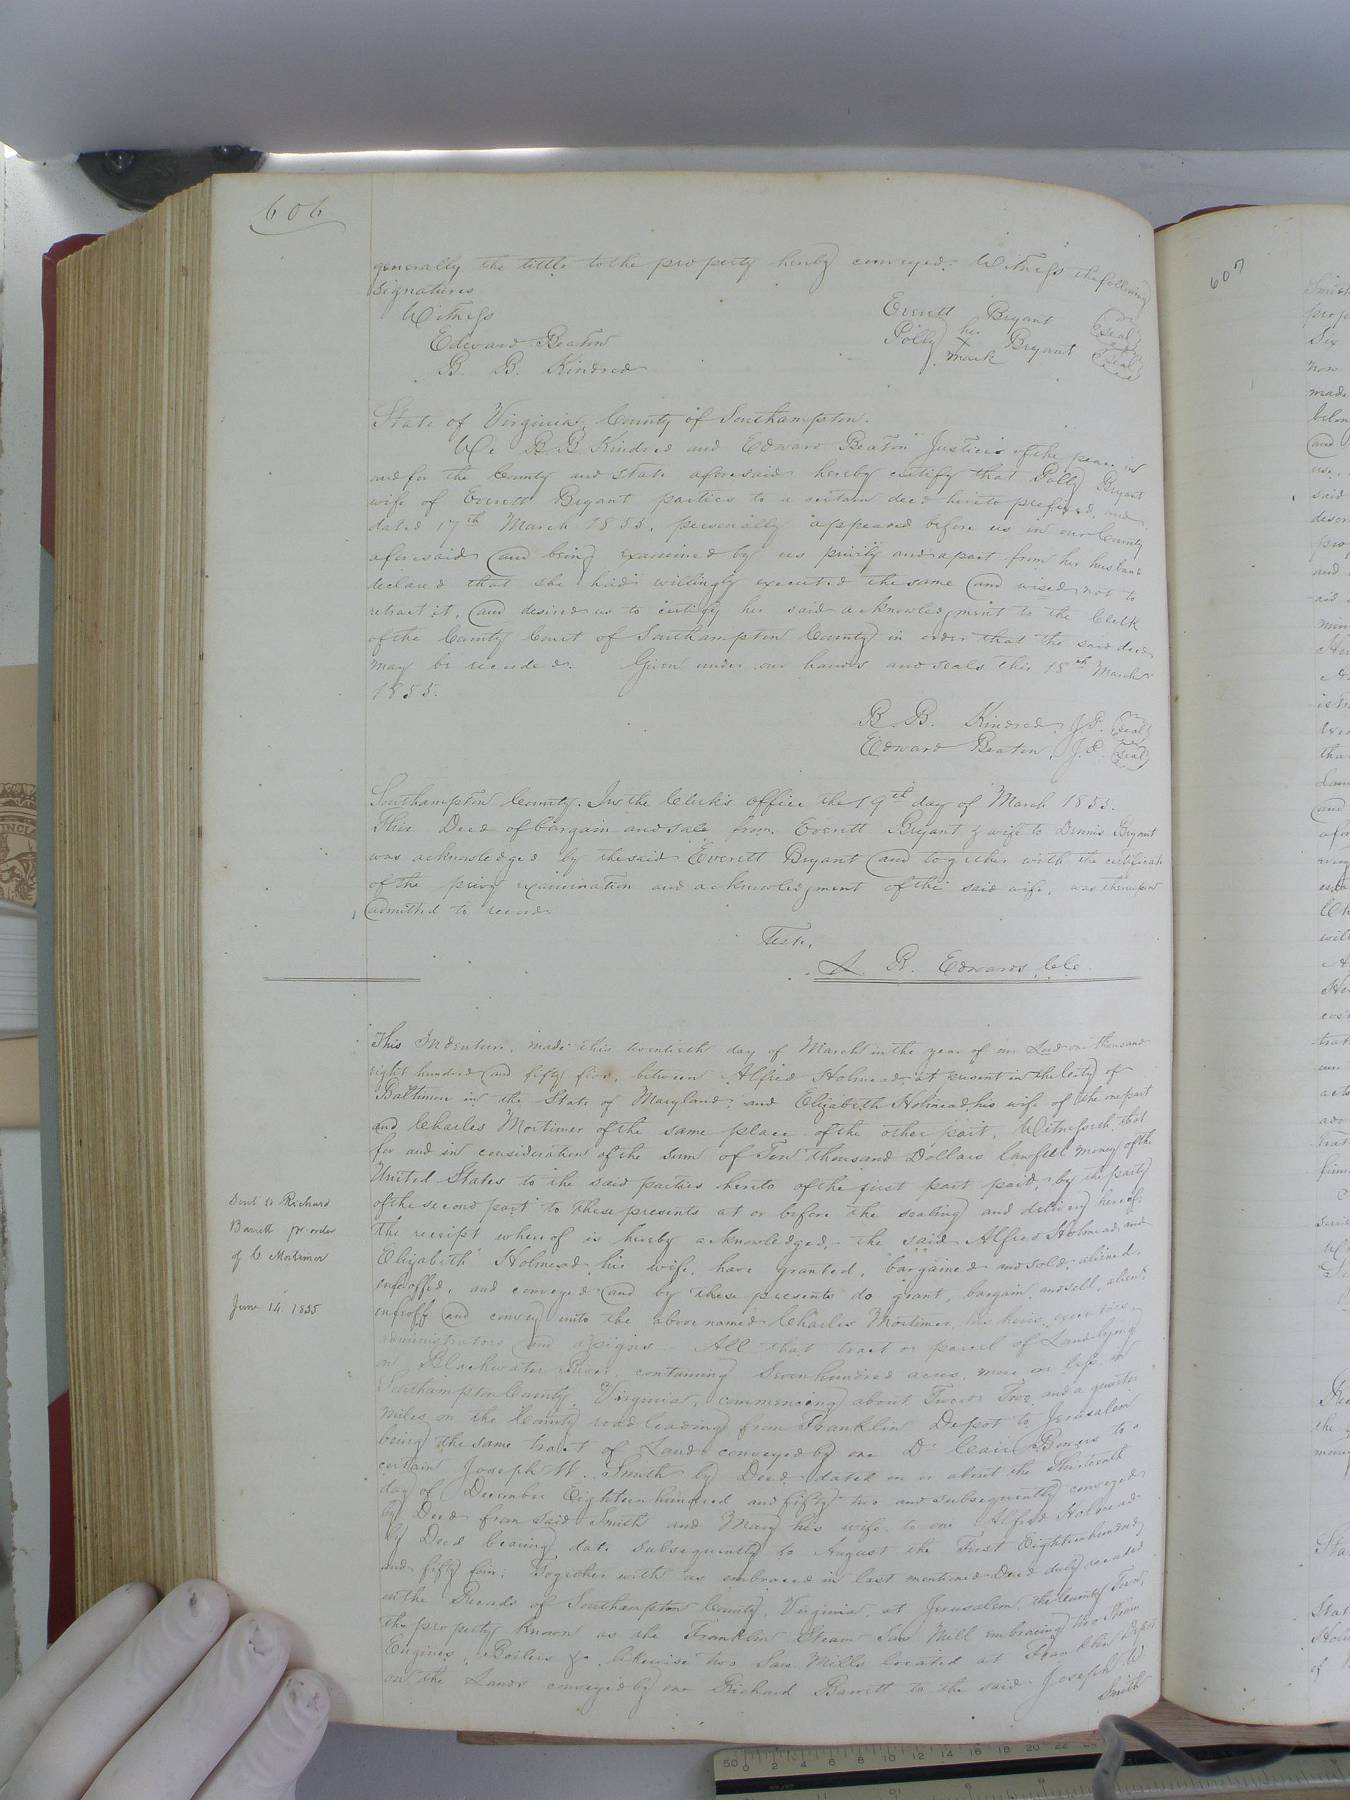 606
generally the tittle to the property hereby conveyed. Witness the following
signatures
Witness
Everett Bryant (seal)
Edward Beaton
Polly her x mark Bryant (seal)
B. B. Kindred
State of Virginia, County of Southampton.
We B B Kindred and Edward Beaton Justices of the peace in
and for the County and State aforesaid hereby certify that Polly Bryant
wife of Everett Bryant parties to a certain deed hereto prefixed and
dated 17th March 1855, personally appeared before us in our County
aforesaid and being examined by us privily and apart from her husband
declared that she had willingly executed the same and wised not to
retract it, and desired us to certify her said acknowledgment to the Clerk
of the County Court of Southampton County in order that the said deed
may be recorded. Given under our hands and seals this 18th March
1855.
B. B. Kindred, J.P. (seal)
Edward Beaton, J.P. (seal)
Southampton County. In the Clerk's office the 19th day of March 1855.
This Deed of bargain and sale from Everett Bryant & wife to Dennis Bryant
was acknowledged by the said Everett Bryant and together with the certificate
of the privy examination and acknowledgment of the said wife, was thereupon
admitted to record
Test,
L. R. Edwards, C.C.
This Indenture, made this twentieth day of March in the year of our Lord one thousand
eight hundred and fifty five, between Alfred Holmead, at present in the City of
Baltimore in the State of Maryland, and Elizabeth Holmead, his wife of the one part
and Charles Mortimer of the same place of the other part, Witnesseth, that
for and in consideration of the sum of Ten thousand Dollars lawfull money of the
United States to the said parties hereto of the first part paid, by the party
of the second part to these presents at or before the sealing and delivery hereof,
the receipt whereof is hereby acknowledged, the said Alfred Holmead and
Elizabeth Holmead, his wife, have granted, bargained and sold, aliened,
enfeoffed, and conveyed and by these presents do grant, bargain, and sell, alien,
enfeoff and convey unto the above named Charles Mortimer, his heirs, executors,
administrators and assigns All that tract or parcel of Land lying
on Blackwater River, containing Seven hundred acres, more or less, in
Southampton County, Virginia, commencing about Two and a quarter
miles on the County road leading from Franklin Depot to Jerusalem
being the same tract of Land conveyed by one Dr Cair Bowers to a
certain Joseph W. Smith by Deed dated on or about the Thirteenth
day of December Eighteen hundred and fifty two and subsequently conveyed
by Deed from said Smith and Mary his wife to one Alfred Holmead
by Deed bearing date subsequently to August the First Eighteen hundred
and fifty four: Together with as embraced in last mentioned Deed duly recorded
in the Records of Southampton County, Virginia, at Jerusalem, the County Town,
the property known as the Franklin Steam Saw Mill embracing two Steam
Engines, Boilers &c, likewise two Saw Mills located at Franklin Depot
on the Lands conveyed by one Richard Barrett to the said Joseph W
Smith
Sent to Richard
Barrett pr order
of C Mortimer
June 14 1855
607